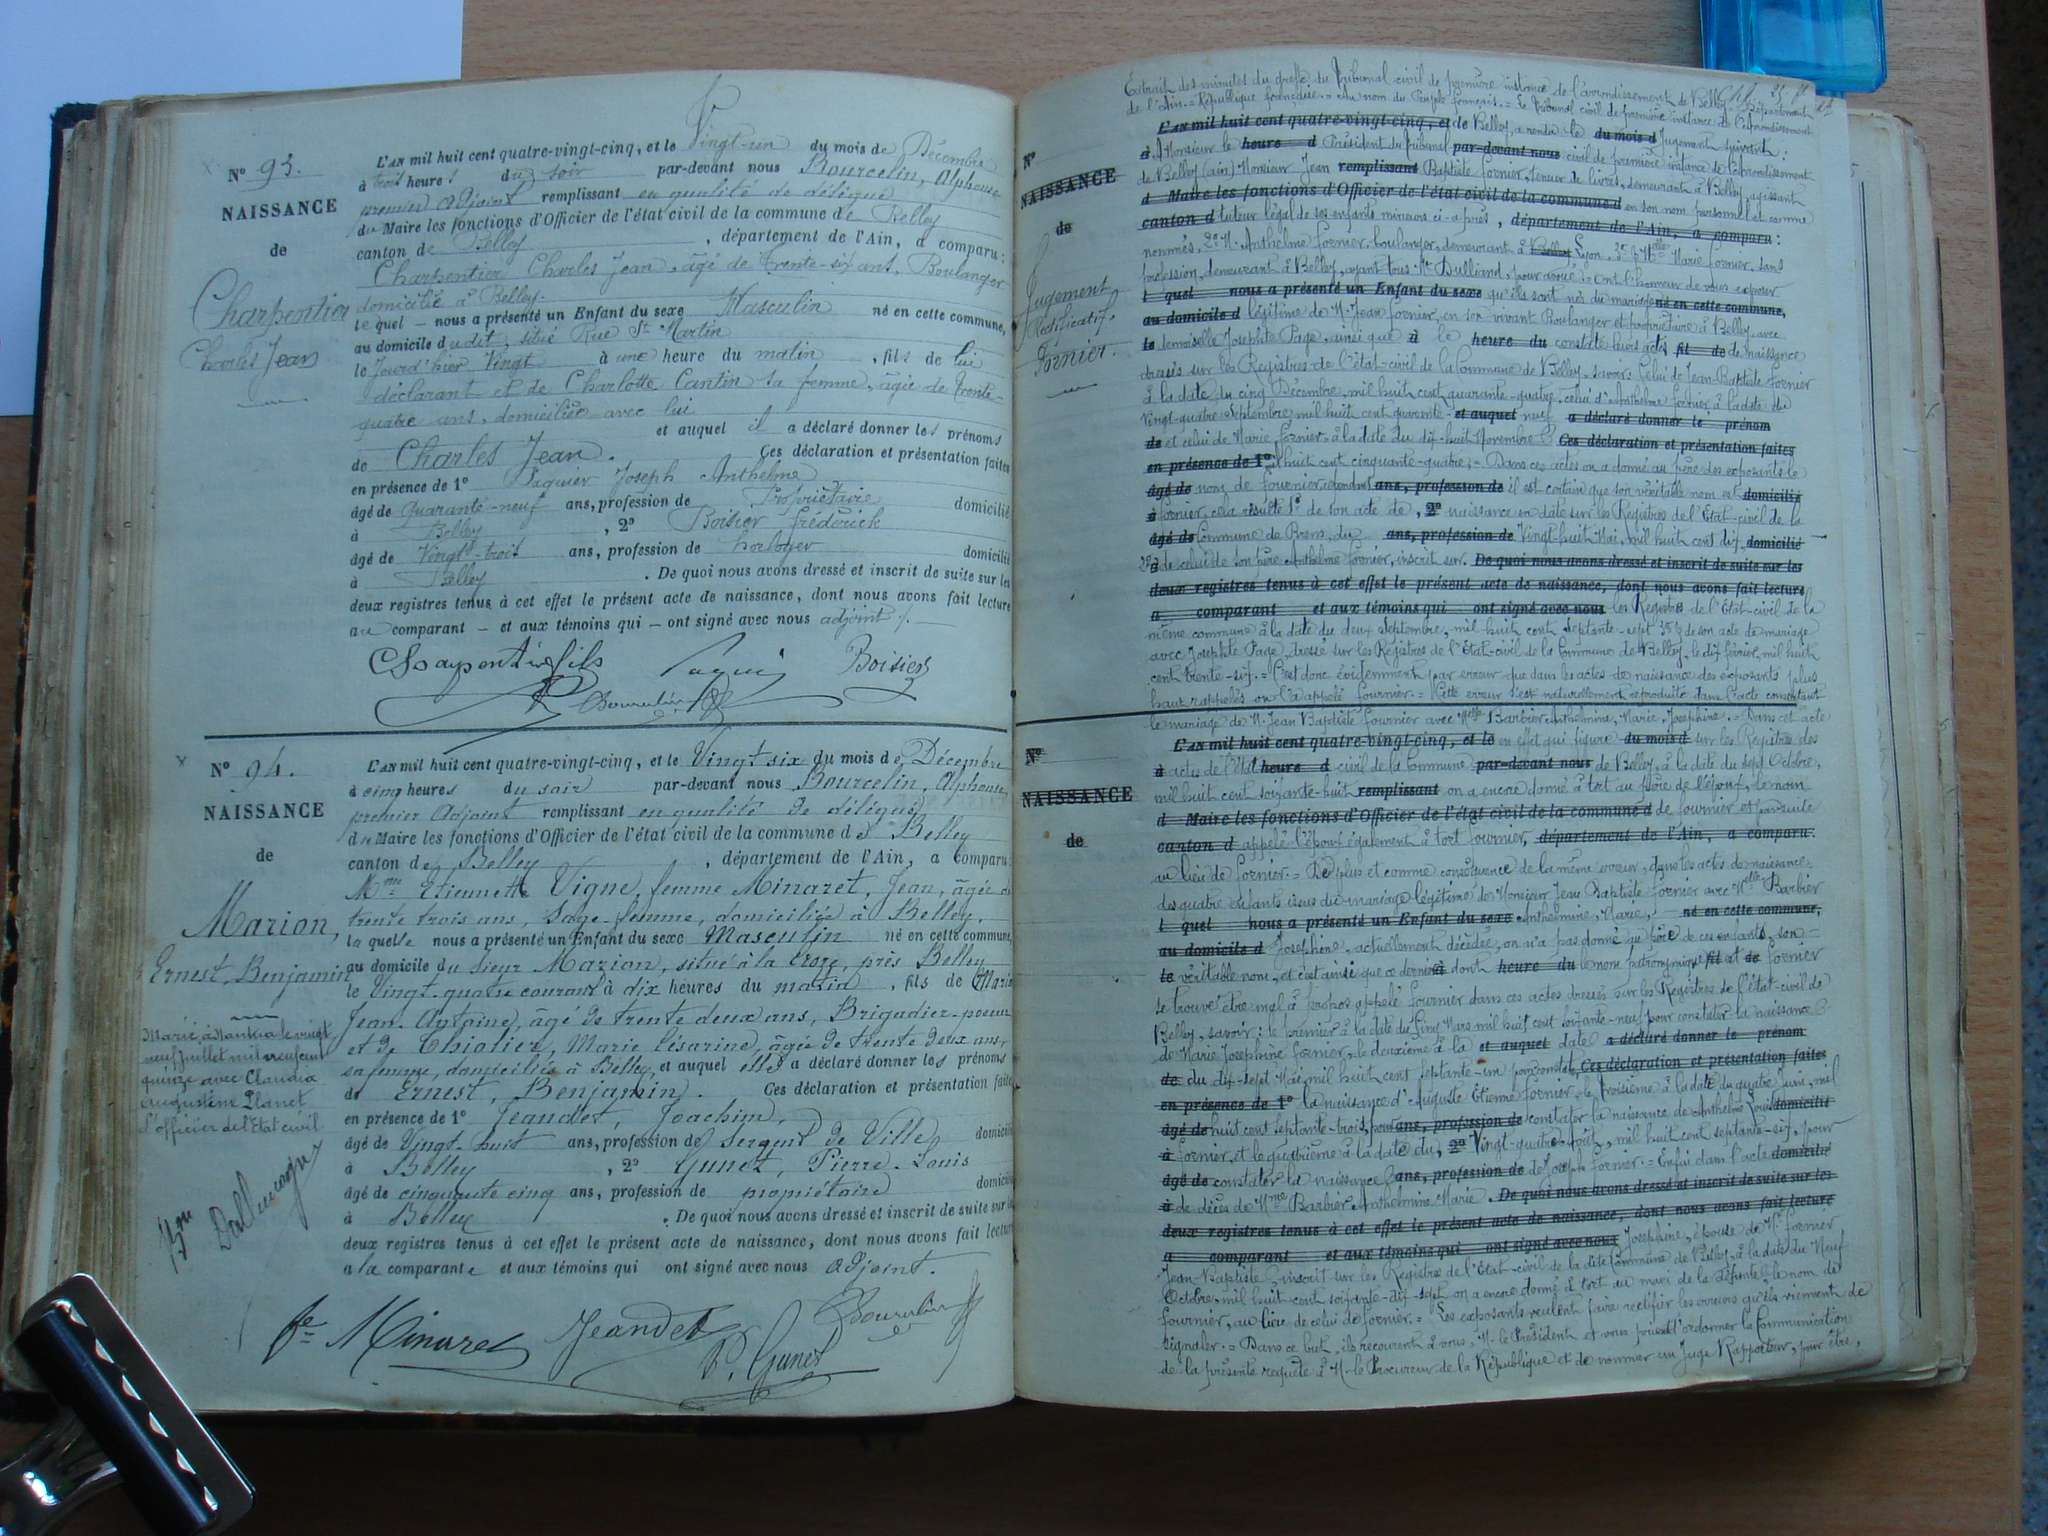 N° 93.
NAISSANCE
de
Charpentier
Charles Jean
L'AN mil huit cent quatre-vingt-cinq, et le Vingt-un du mois de Décembre
à trois heures du soir par-devant nous Bourcelin, Alphonse
premier Adjoint remplissant en qualité de délégué
du Maire les fonctions d'Officier de l'état civil de la commune de Belley
canton de Belley, département de l'Ain, a comparu:
Charpentier Charles Jean, âgé de trente-six ans, Boulanger
domicilié à Belley.
le quel — nous a présenté un Enfant du sexe Masculin né en cette commune,
au domicile du dit, situé Rue St Martin
le jour d'hier Vingt à une heure du matin, fils de lui
déclarant et de Charlotte Cantin sa femme, âgée de trente-
quatre ans, domiciliée avec lui
et auquel il a déclaré donner les prénoms
de Charles Jean. Ces déclaration et présentation faites
en présence de 1° Joseph Anthelme
âgé de Quarante-neuf ans, profession de Propriétaire domicilié
à Belley, 2° Boisier, frédérick
âgé de Vingt-trois ans, profession de horloger domicilié
à Belley. De quoi nous avons dressé et inscrit de suite sur les
deux registres tenus à cet effet le présent acte de naissance, dont nous avons fait lecture
au comparant — et aux témoins qui — ont signé avec nous adjoint /.
Charpentier fils Boisier
N° 94.
NAISSANCE
de
Marion,
Ernest, Benjamin
Marié à Nantua le vingt
neuf juillet mil neuf cent
quinze avec Claudia
Augustine Planet
L'officier de l'Etat civil
L'AN mil huit cent quatre-vingt-cinq, et le Vingt six du mois de Décembre
à cinq heures du soir par-devant nous Bourcelin, Alphonse,
premier Adjoint remplissant en qualité de délégué
du Maire les fonctions d'Officier de l'état civil de la commune de Belley
canton de Belley, département de l'Ain, a comparu:
Mme Etiennette Vigne, femme Minaret, Jean, âgée de
trente trois ans, Sage-femme, domiciliée à Belley.
la quelle nous a présenté un Enfant du sexe Masculin né en cette commune,
au domicile du sieur Marion, situé à la Croze, près Belley
le Vingt-quatre courant à dix heures du matin, fils de Marion
Jean-Antoine, âgé de trente deux ans, Brigadier-poseur
et de Thiolier, Marie Césarine, âgée de trente deux ans,
sa femme, domiciliés à Belley, et auquel elle a déclaré donner les prénoms
de Ernest, Benjamin. Ces déclaration et présentation faites
en présence de 1° Jeandet, Joachim,
âgé de Vingt-huit ans, profession de Sergent de Ville, domicilié
à Belley, 2° Gunet, Pierre-Louis
âgé de cinquante cinq ans, profession de propriétaire domicilié
à Belley. De quoi nous avons dressé et inscrit de suite sur les
deux registres tenus à cet effet le présent acte de naissance, dont nous avons fait lecture
a la comparante et aux témoins qui ont signé avec nous adjoint.
fe Minaret Jeandet
P. Gunet
Extrait des minutes du greffe du Tribunal civil de première instance de l'arrondissement de Belley, Département
de l'Ain. = République française. = Au nom du Peuple français. = Le Tribunal civil de première instance de l'arrondissement
N°
NAISSANCE
de
Jugement
Rectificatif.
Fornier.
L'AN mil huit cent quatre-vingt-cinq, et de Belley, a rendu le du mois d Jugement suivant:
à Monsieur le heure d Président du Tribunal par-devant nous civil de première instance de l'arrondissement
de Belley (Ain) Monsieur Jean remplissant Baptiste fornier, teneur de livres, demeurant à Belley, agissant
d Maire les fonctions d'Officier de l'état civil de la commune d en son nom personnel et comme
canton d tuteur légal de ses enfants mineurs ci-après, département de l'Ain, a comparu:
nommés, 2° M. Anthelme fornier, boulanger, demeurant à Lyon, 3° Marie fornier, sans
profession, demeurant à Belley, ayant tous Me Dulliand, pour avoué: = ont l'honneur de vous exposer
l quel nous a présenté un Enfant du sexe qu'ils sont nés du mariage né en cette commune,
au domicile d légitime de M. Jean fornier, en son vivant Boulanger et propriétaire à Belley, avec
le demoiselle Josephte Page, ainsi que à le heure du constate leurs actes fil de de naissance
dressés sur les Registres de l'état-civil de la Commune de Belley, savoir: Celui de Jean-Baptiste fornier
à la date du cinq Décembre, mil huit cent quarante-quatre, celui d'Anthelme fornier à la date du
vingt-quatre Septembre mil huit cent quarante- et auquel neuf a déclaré donner le prénom
de et celui de Marie fornier, à la date du dix-huit Novembre Ces déclaration et présentation faites
en présence de 1° mil huit cent cinquante-quatre; = Dans ces actes on a donné au père des exposants le
âgé de nom de fournier, cependant ans, profession de il est certain que son véritable nom est domicilié
à fornier, cela résulte 1° de son acte de, 2° naissance en date sur les Registres de l'Etat-civil de la
âgé de Commune de Brens, du ans, profession de Vingt-huit Mai, mil huit cent dix, domicilié
2° à de celui de son père Anthelme fornier, inscrit sur. De quoi nous avons dressé et inscrit de suite sur les
deux registres tenus à cet effet le présent acte de naissance, dont nous avons fait lecture
a comparant et aux témoins qui ont signé avec nous les Registres de l'Etat-civil de la
même commune à la date du deux Septembre, mil huit cent Septante-sept 3° de son acte de mariage
avec Josephte Page, dressé sur les Registres de l'Etat-civil de la Commune de Belley, le dix février, mil huit
cent trente-six. = C'est donc évidemment par erreur que dans les actes de naissance des exposants plus
haut rappelés on l'a appelé fournier. = Cette erreur s'est naturellement reproduite dans l'acte constatant
le mariage de M. Jean Baptiste fournier avec Melle Barbier, Anthelmine, Marie, Josephine. = Dans cet acte
N°
NAISSANCE
de
L'AN mil huit cent quatre-vingt-cinq, et le en effet qui figure du mois d sur les Registres des
à actes de l'état heure d civil de la Commune par-devant nous de Belley, à la date du sept Octobre,
mil huit cent soixante-huit remplissant on a encore donné à tort au père de l'époux, le nom
d Maire les fonctions d'Officier de l'état civil de la commune d de fournier et par suite
canton d appelé l'époux également à tort fournier, département de l'Ain, a comparu.
au lieu de fornier. = De plus et comme conséquence de la même erreur, dans les actes de naissance
des quatre enfants issus du mariage légitime de Monsieur Jean Baptiste fornier avec Melle Barbier
l quel nous a présenté un Enfant du sexe Anthelmine, Marie, — né en cette commune,
au domicile d Josephine, actuellement décédée, on n'a pas donné au père de ces enfants, son =
le véritable nom, et c'est ainsi que ce dernier à dont heure du le nom patronymique fil est de fornier
se trouve être mal à propos appelé fournier dans ces actes dressés sur les Registres de l'état-civil de
Belley, savoir: le premier à la date du Cinq Mars mil huit cent soixante-neuf pour constater la naissance
de Marie Josephine fornier, le deuxième à la et auquel date a déclaré donner le prénom
de du dix-sept Mai, mil huit cent septante-un pour constater, Ces déclaration et présentation faites
en présence de 1° la naissance d'Auguste Etienne fornier, le troisième à la date du quatre Juin, mil
âgé de huit cent septante-trois, pour ans, profession de constater la naissance de Anthelme Louis domicilié
à fornier, et le quatrième à la date du, 2° Vingt-quatre Août, mil huit cent septante-six, pour
âgé de constater la naissance ans, profession de de Joseph fornier. = Enfin dans l'acte domicilié
à de décès de Mme Barbier Anthelmine Marie. De quoi nous avons dressé et inscrit de suite sur les
deux registres tenus à cet effet le présent acte de naissance, dont nous avons fait lecture
a comparant et aux témoins qui ont signé avec nous Josephine, épouse de Mr fornier
Jean Baptiste, inscrit sur les Registres de l'Etat-civil de la dite Commune de Belley, à la date du Neuf
Octobre, mil huit cent soixante-dix-sept on a encore donné à tort au mari de la défunte le nom de
fournier, au lieu de celui de fornier. = Les exposants veulent faire rectifier les erreurs qu'ils viennent de
signaler. = Dans ce but, ils recourent à vous, M. le Président et vous prient d'ordonner la Communication
de la présente requête à M. le Procureur de la République et de nommer un Juge Rapporteur, pour être,